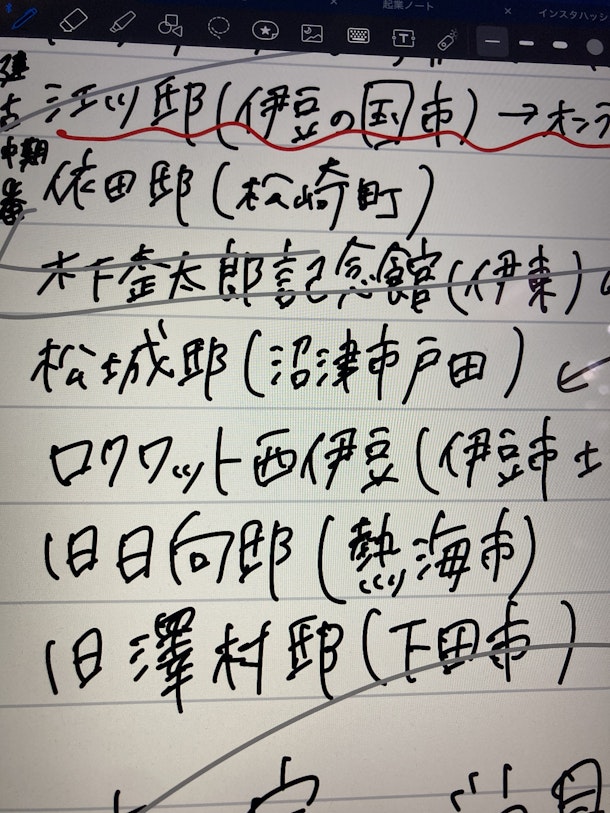 起業ノート
インスタハッシ
江川邸(伊豆の国市)→オンラ
中期
依田邸(松崎町)
木下杢太郎記念館(伊東)
松城邸(沼津市戸田)←
ロクワット西伊豆(伊豆市土
旧日向邸(熱海市)
旧澤村邸(下田市)